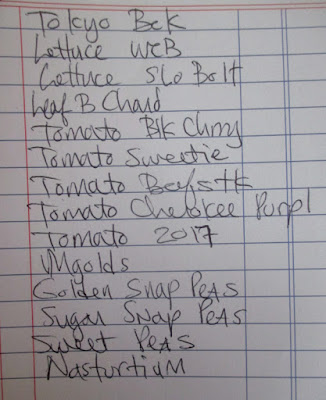 Tokyo Bek
Lettuce WCB
Lettuce Slo Bolt
Leaf B Chard
Tomato Blk Chrry
Tomato Sweetie
Tomato Beefstk
Tomato Cherokee Purpl
Tomato 2017
Mgolds
Golden Snap Peas
Sugar Snap Peas
Sweet Peas
Nasturtium